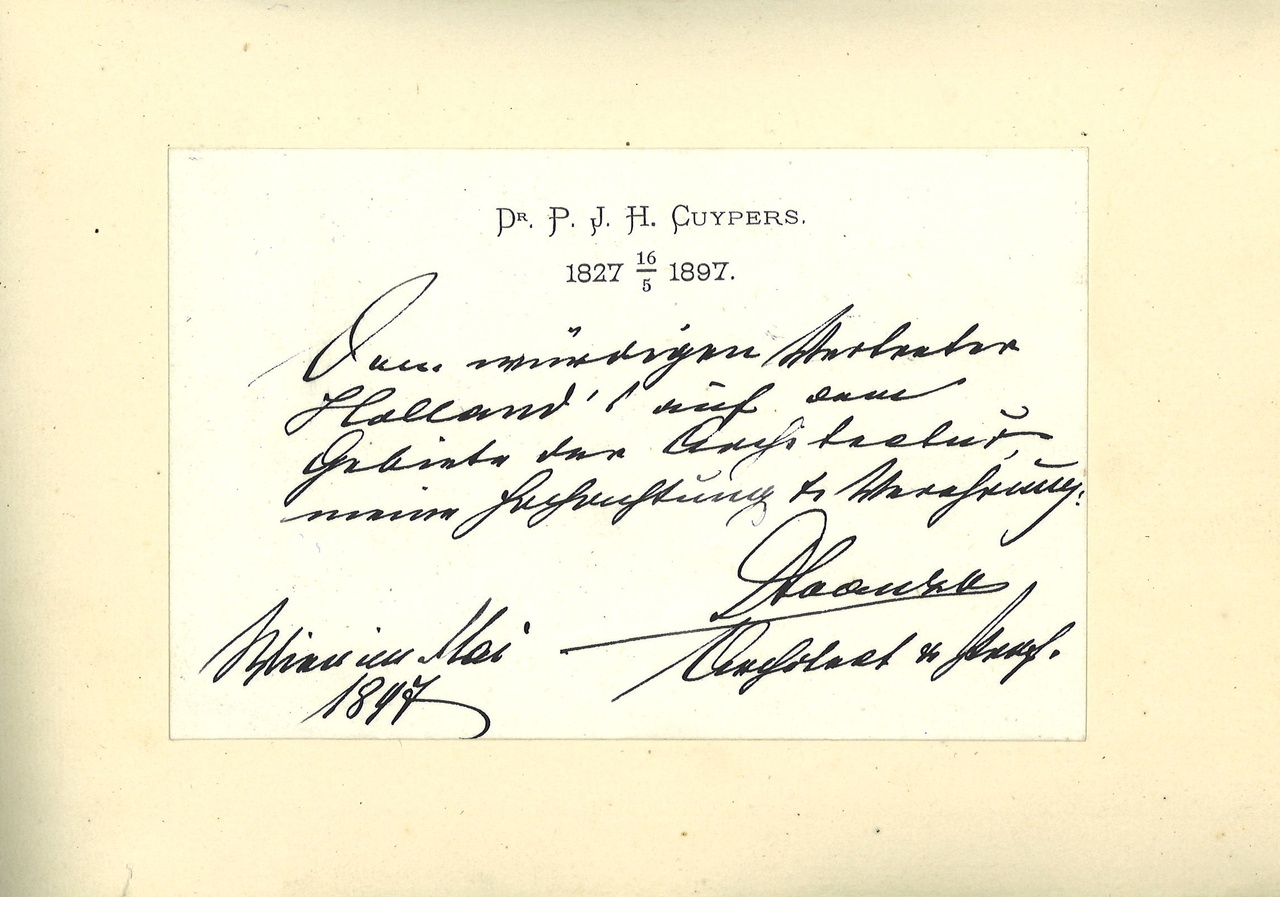 DR. P. J. H. CUYPERS.
1827 16/5 1897.
Dem würdigen Vertreter
Holland's auf dem
Gebiete der Architectur,
meine Hochachtung & Verehrung.
Architect & Prof.
Wien im Mai
1897